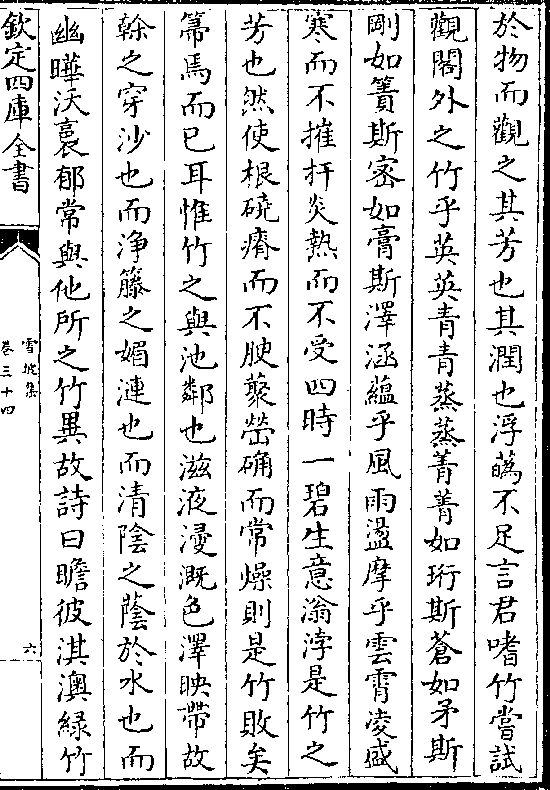 於物而觀之其芳也其潤也浮蘤不足言君嗜竹嘗試
觀閣外之竹乎英英青青蒸蒸菁菁如珩斯蒼如矛斯
剛如簀斯密如膏斯澤涵蘊乎風雨盪摩乎雲霄凌盛
寒而不摧扞炎熱而不受四時一碧生意滃浡是竹之
芳也然使根磽瘠而不腴藂塋确而常燥則是竹敗矣
篲焉而已耳惟竹之與池鄰也滋液浸溉色澤映帶故
榦之穿沙也而淨籐之媚漣也而清陰之蔭於水也而
幽曄沃裛郁常與他所之竹異故詩曰瞻彼淇澳綠竹
欽定四庫全書
雪坡集
卷三十四
六